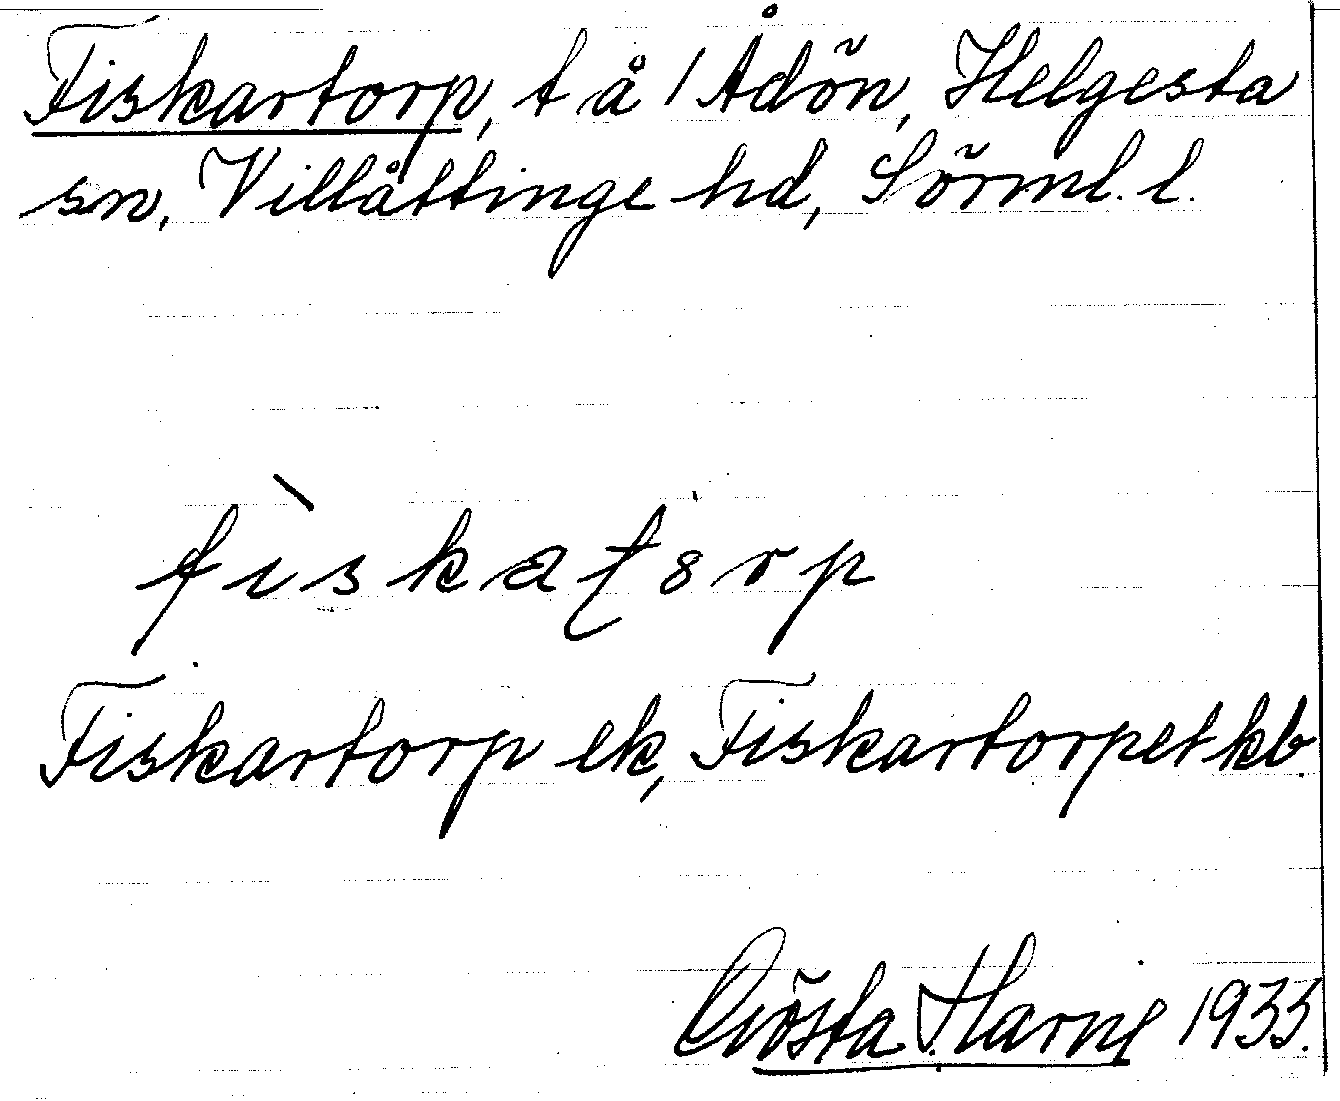 Fiskartorp, t å 1 Ådön, Helgesta
sn, Villåttinge hd, Sörml. l.
fìskaʈorp
Fiskartorp ek, Fiskartorpet kb.
Gösta Harne 1933.